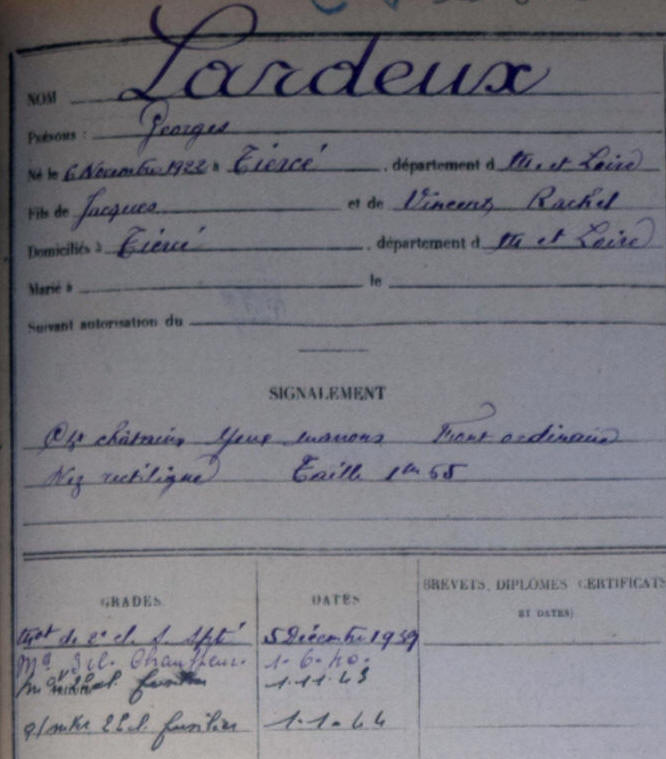 NOM Lardeux
Prénoms : Georges
Né le 6 Novembre 1922 à Tiercé, département d M. et Loire
Fils de Jacques et de Vincent, Rachel
Domiciliés à Tiercé, département d M et Loire
Marié à le
Suivant autorisation du
SIGNALEMENT
châtains Yeux marrons Front ordinaire
Nez rectiligne Taille 1m 65
GRADES DATES BREVETS, DIPLOMES CERTIFICATS
ET DATES)
Mot de 2e cl. S. Spté 5 Décembre 1939
Chauffeur. 1-6-40.
fusilier 1.11.43
q/mtre 2 cl. fusilier 1.1-44